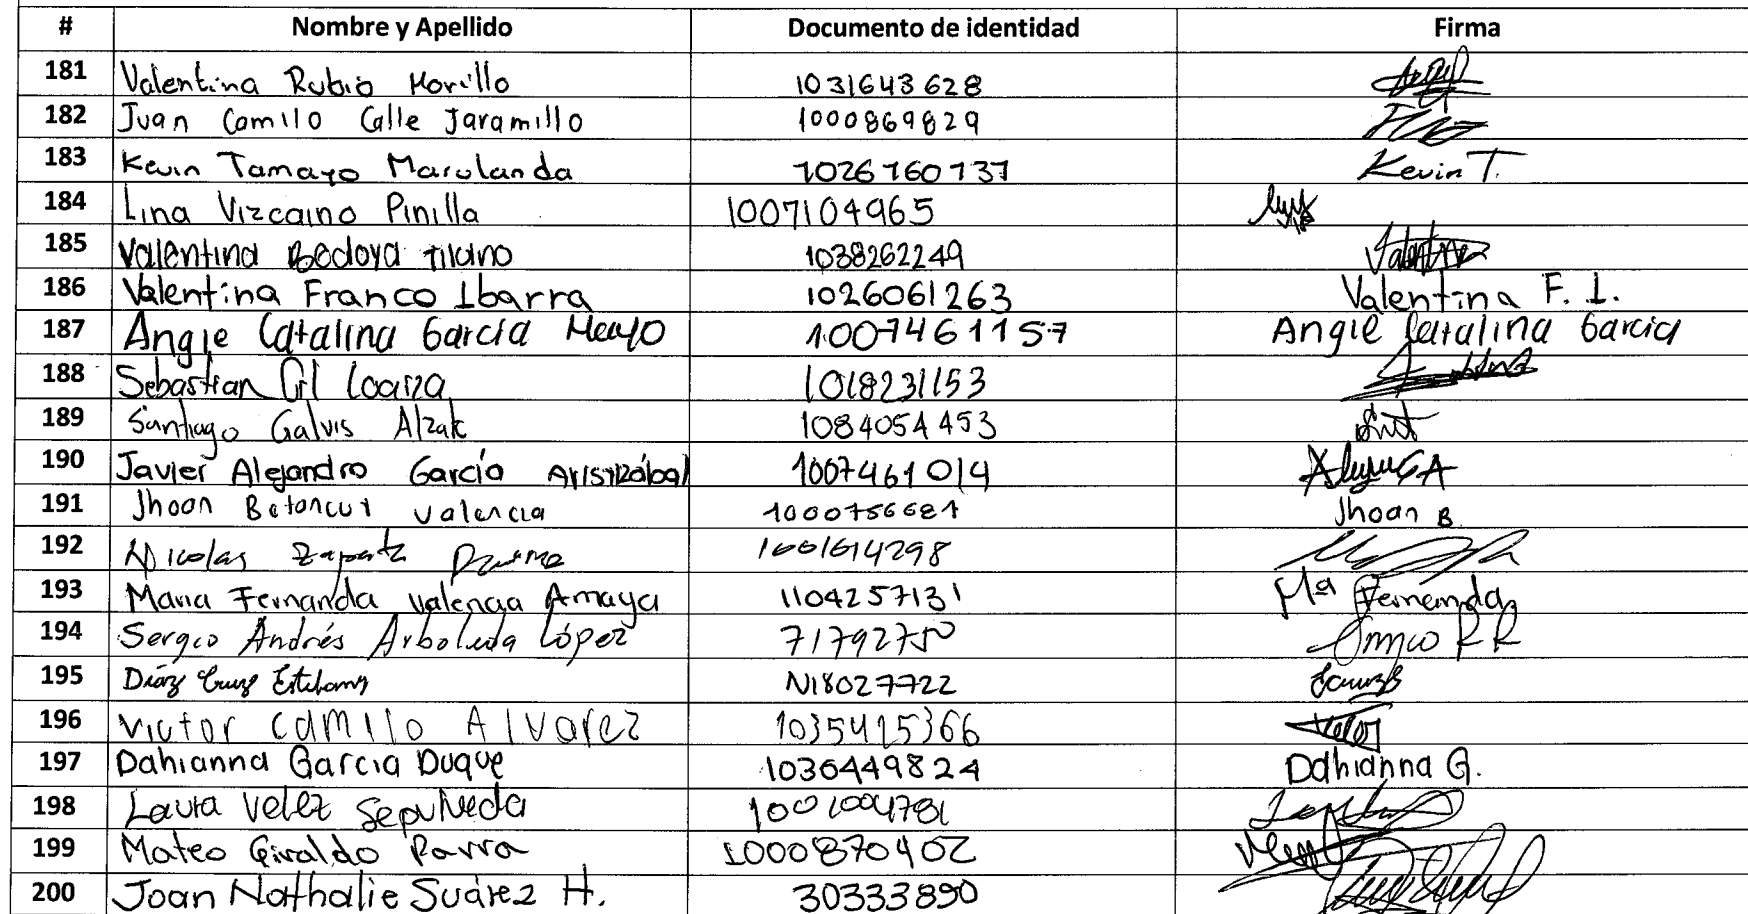 # Nombre y Apellido Documento de identidad Firma
181 Valentina Rubio Morillo 1031643628
182 Juan Camilo Calle Jaramillo 1000869829
183 Kevin Tamayo Marulanda 1026160137 Kevin T.
184 Lina Vizcaino Pinilla 1007104965
185 Valentina Bedoya 1038262249 Valentina
186 Valentina Franco Ibarra 1026061263 Valentina F. I.
187 Angie Catalina Garcia 1007461157 Angie Catalina Garcia
188 Sebastian Gil Loaiza 1018231153
189 Santiago Galvis Alzate 1084054453
190 Javier Alejandro García Aristizábal 1007461014
191 Jhoan Betancur Valencia 1000756681 Jhoan B
192 Nicolas Zapata 1001614298
193 Maria Fernanda Valencia Amaya 1104257131 Mª Fernanda
194 Sergio Andrés Arboleda López 71792750
195 Díaz Cruz N18027722
196 Victor Camilo Alvarez 1035415366
197 Dahianna Garcia Duque 1036449824 Dahianna G.
198 Laura Velez Sepulveda
199 Mateo Giraldo Parra 1000870402
200 Joan Nathalie Suárez H. 30333890